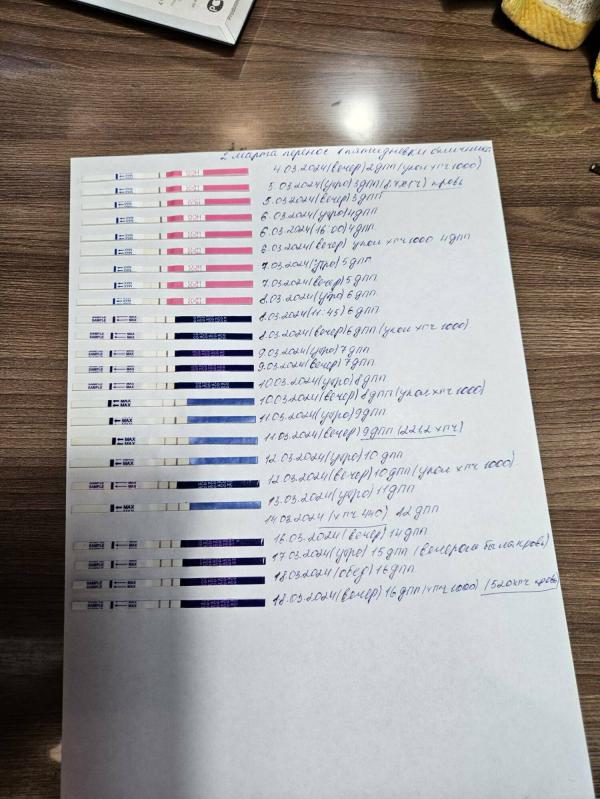 2 марта перенос 1 пятидневки отличника
4.03.2024 (вечер) 2 дпп (укол хгч 1000)
5.03.2024 (утро) 3 дпп кровь
5.03.2024 (вечер) 3 дпп
6.03.2024 (утро) 4 дпп
6.03.2024 (16:00) 4 дпп
6.03.2024 (вечер) укол хгч 1000 4 дпп
7.03.2024 (утро) 5 дпп
7.03.2024 (вечер) 5 дпп
8.03.2024 (утр) 6 дпп
8.03.2024 (11:45) 6 дпп
8.03.2024 (вечер) 6 дпп (укол хгч 1000)
9.03.2024 (утро) 7 дпп
9.03.2024 (вечер) 7 дпп
10.03.2024 (утро) 8 дпп
10.03.2024 (вечер) 8 дпп (укол хгч 1000)
11.03.2024 (утро) 9 дпп
11.03.2024 (вечер) 9 дпп (221,2 хгч)
12.03.2024 (утро) 10 дпп
12.03.2024 (вечер) 10 дпп (укол хгч 1000)
13.03.2024 (утро) 11 дпп
14.03.2024 (хгч 440) 12 дпп
16.03.2024 (вечер) 14 дпп
17.03.2024 (утро) 15 дпп (вечером была кровь)
18.03.2024 (обед) 16 дпп
18.03.2024 (вечер) 16 дпп (хгч 1000) (520 хгч кровь
HCG
MAX
SAMPLE